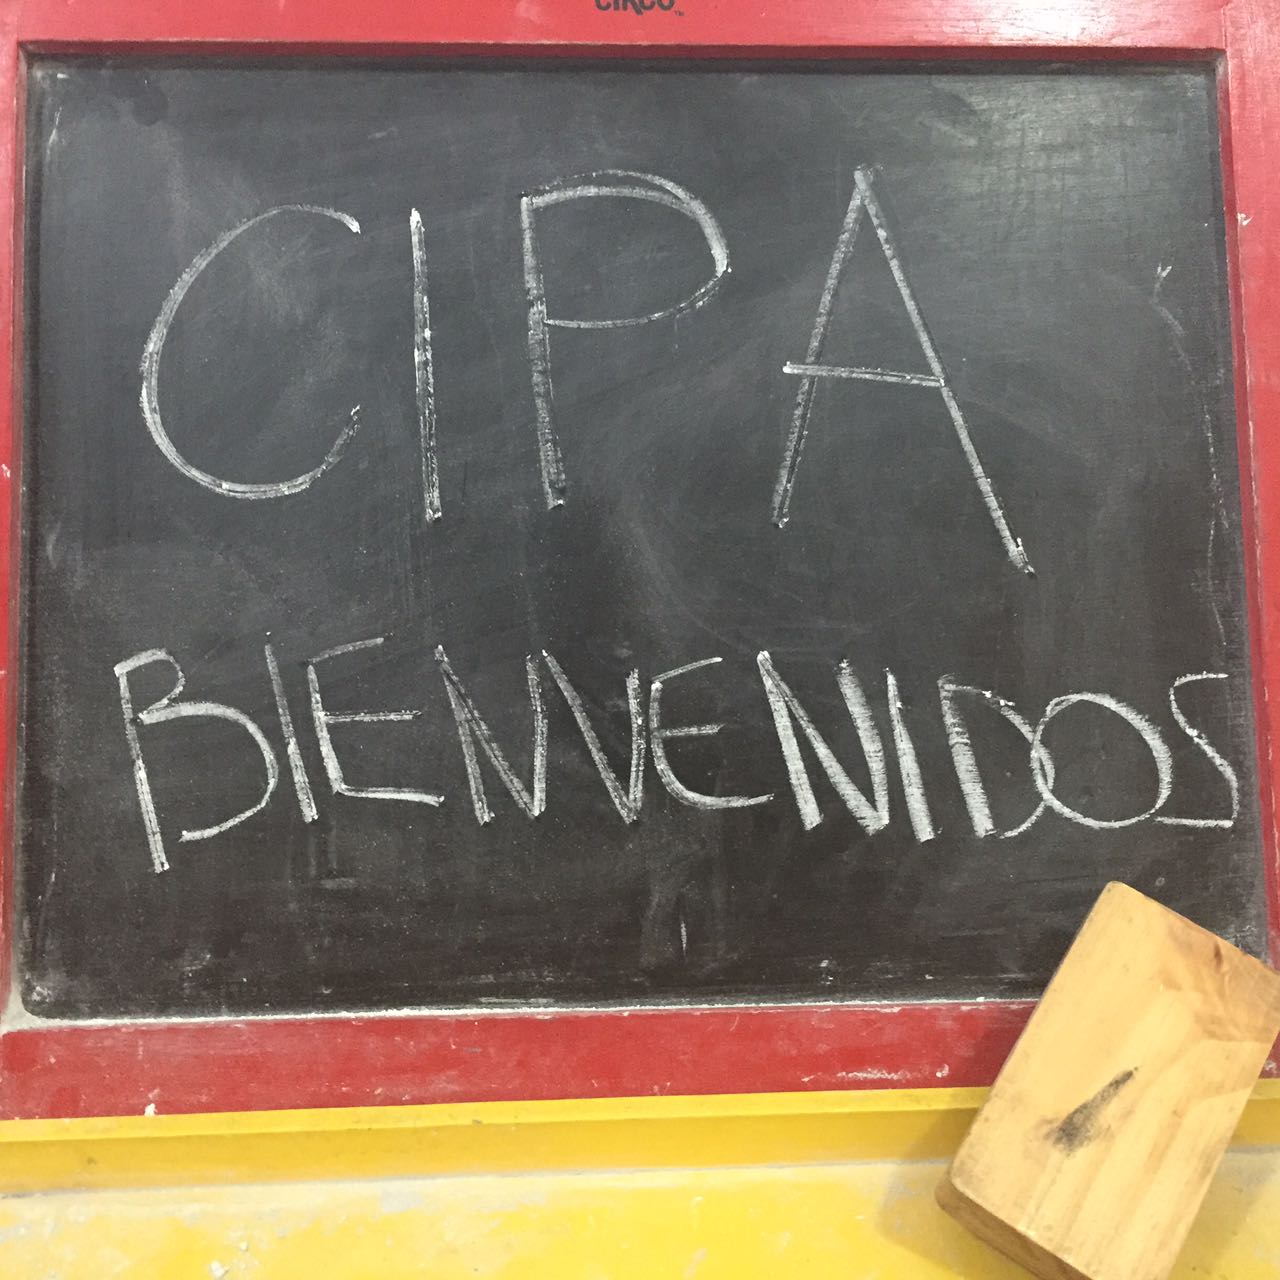 CIRCO™
CIPA
BIENVENIDOS